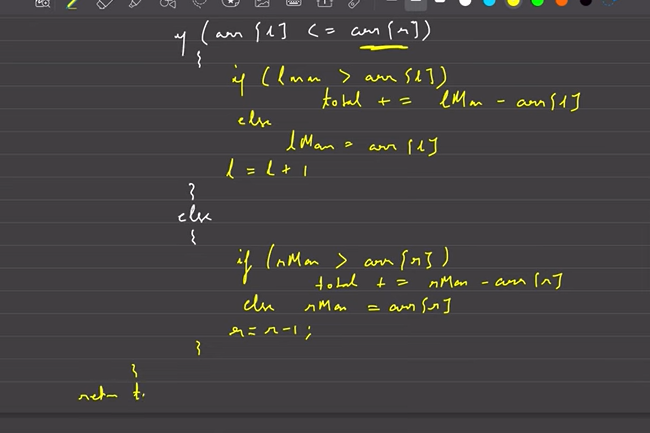 if (arr[l] <= arr[r])
{
if (lmax > arr[l])
total += lMax - arr[l]
else
lMax = arr[l]
l = l + 1
}
else
{
if (rMax > arr[r])
total += rMax - arr[r]
else rMax = arr[r]
r = r - 1;
}
}
retn t.